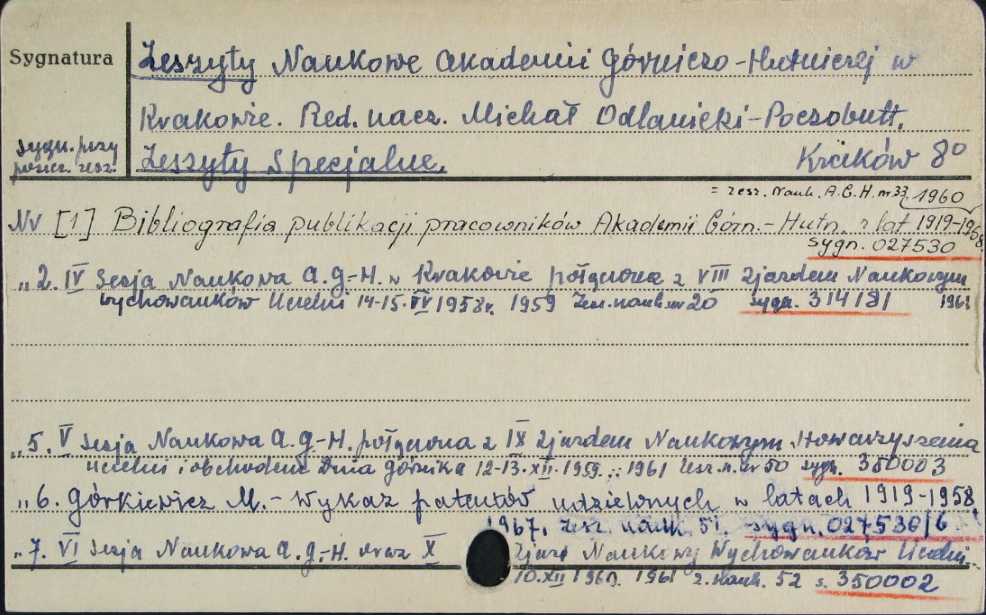 Sygnatura
Zeszyty Naukowe Akademii Górniczo-Hutniczej w
Krakowie. Red. nacz. Michał Odlanicki-Poczobutt.
sygn. przy
poszcz. zesz.
Zeszyty Specjalne. Kraków 8°
= zesz. Nauk. A.G.H. nr 33, 1960
Nr [1] Bibliografia publikacji pracowników Akademii Górn.-Hutn. z lat 1919-1958
sygn. 027530
„ 2. IV Sesja Naukowa A.G-H. w Krakowie połączona z VIII Zjazdem Naukowym
Wychowanków Uczelni 14-15. 1958r. 1959 Zesz. nauk. nr 20 sygn. 314181
„ 5. V Sesja Naukowa A.G-H. połączona z IX Zjazdem Naukowym Stowarzyszenia
uczelni i obchodem Dnia Górnika 12-13.XII.1959. 1961 Zesz. n. nr 50 sygn. 350003
„ 6. Górkiewicz M. - Wykaz patentów udzielonych w latach 1919-1958
1967. Zesz. nauk. 51. sygn. 027530/6
„ 7. VI Sesja Naukowa A.G-H. oraz X Zjazd Naukowy Wychowanków Uczelni
10.XII 1960. 1961 z. nauk. 52 s. 350002